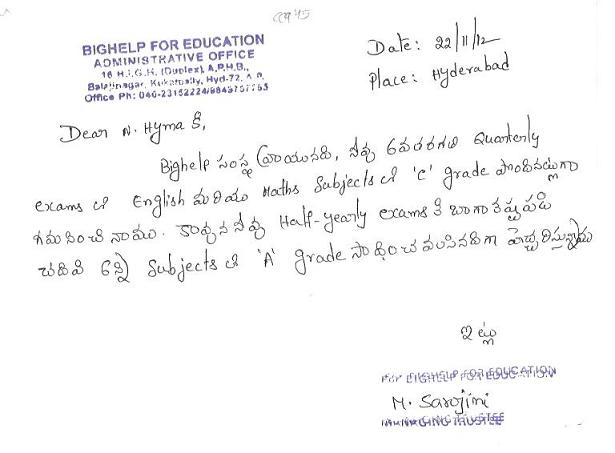 BIGHELP FOR EDUCATION
ADMINISTRATIVE OFFICE
16 H.I.G.H. (Duplex), A.P.H.B.,
Balajinagar, Kukatpally, Hyd-72, A.P.
Office Ph: 040-23152224/
Date: 22/11/12
Place: Hyderabad
Dear N. Hyma కి,
Bighelp సంస్థ వ్రాయునది, నీవు 6వ తరగతి Quarterly
exams లో English మరియు Maths Subjects లో 'C' grade పొందినట్లుగా
గమనించినాము. కావున నీవు Half-yearly exams కి బాగా కష్టపడి
చదివి అన్ని Subjects లో 'A' grade సాధించవలసినదిగా హెచ్చరిస్తున్నాము
ఇట్లు
FOR BIGHELP FOR EDUCATION
M. Sarojini
MANAGING TRUSTEE